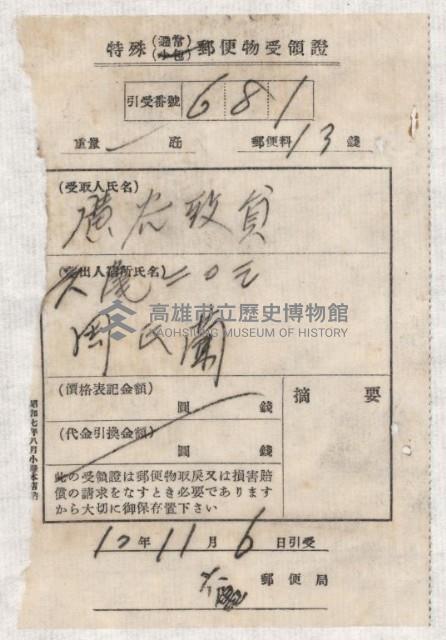 特殊(通常小包)郵便物受領證
引受番號 681
重量 瓩 郵便料 13 錢
(受取人氏名)
廣谷致貟
(差出人宿所氏名)
二〇三
周氏蘭
高雄市立歷史博物館
KAOHSIUNG MUSEUM OF HISTORY
(價格表記金額)
圓 錢
(代金引換金額)
圓 錢
摘要
此の受領證は郵便物取戾又は損害賠
償の請求をなすとき必要であります
から大切に御保存置下さい
12年11月6日引受
郵便局